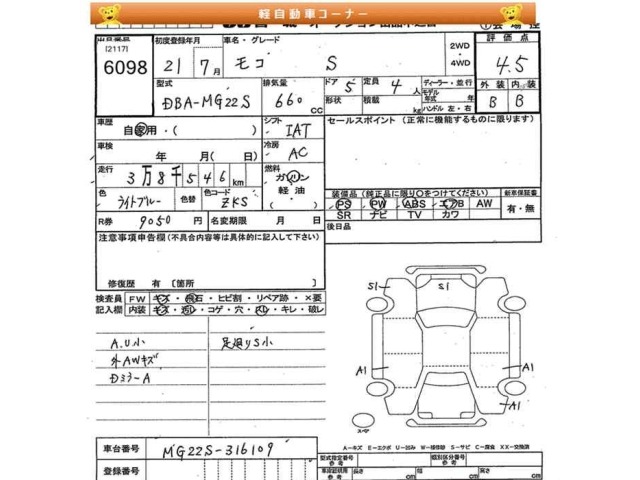 軽自動車コーナー
出品番号 初度登録年月 車名・グレード 2WD 評価点
[2117] ・4WD
6098 21年7月 モコ S 4.5
型式 排気量 ドア 定員 ディーラー・並行 外装 内装
DBA-MG22S 660cc 5 4人 モデル年式 年
形状 積載 kg ハンドル 左・右 B B
車歴 自家用・( ) シフト IAT セールスポイント (正常に機能するものに限ります)
車検 年 月( 日) 冷房 AC
走行 3万8千546km 燃料 ガソリン
軽油
色 ライトブルー 色替 色コード ZKS 装備品 (純正品に限り○をつけてください) 新車保証書
PS PW ABS エアB AW 有・無
R券 9050円 名変期限 月 日 SR ナビ TV カワ
注意事項申告欄(不具合内容等は具体的に記入して下さい) 後日品
修復歴 有 [箇所 ]
検査員 FW キズ・飛石・ヒビ割・リペア跡・×要
記入欄 内装 キズ・汚レ・コゲ・穴・スレ・キレ・破レ
S1 S1
A.U小 足廻りS小
外AWキズ
Dミラ-A
A1 A1
スペア
A-キズ E-エクボ U-凹み W-補修跡 S-サビ C-腐食 XX-交換済
車台番号 MG22S-316109
型式指定番号 類別区分番号
参考 参考
登録番号 車検証現状 参考 長さ cm 幅 cm 高さ cm